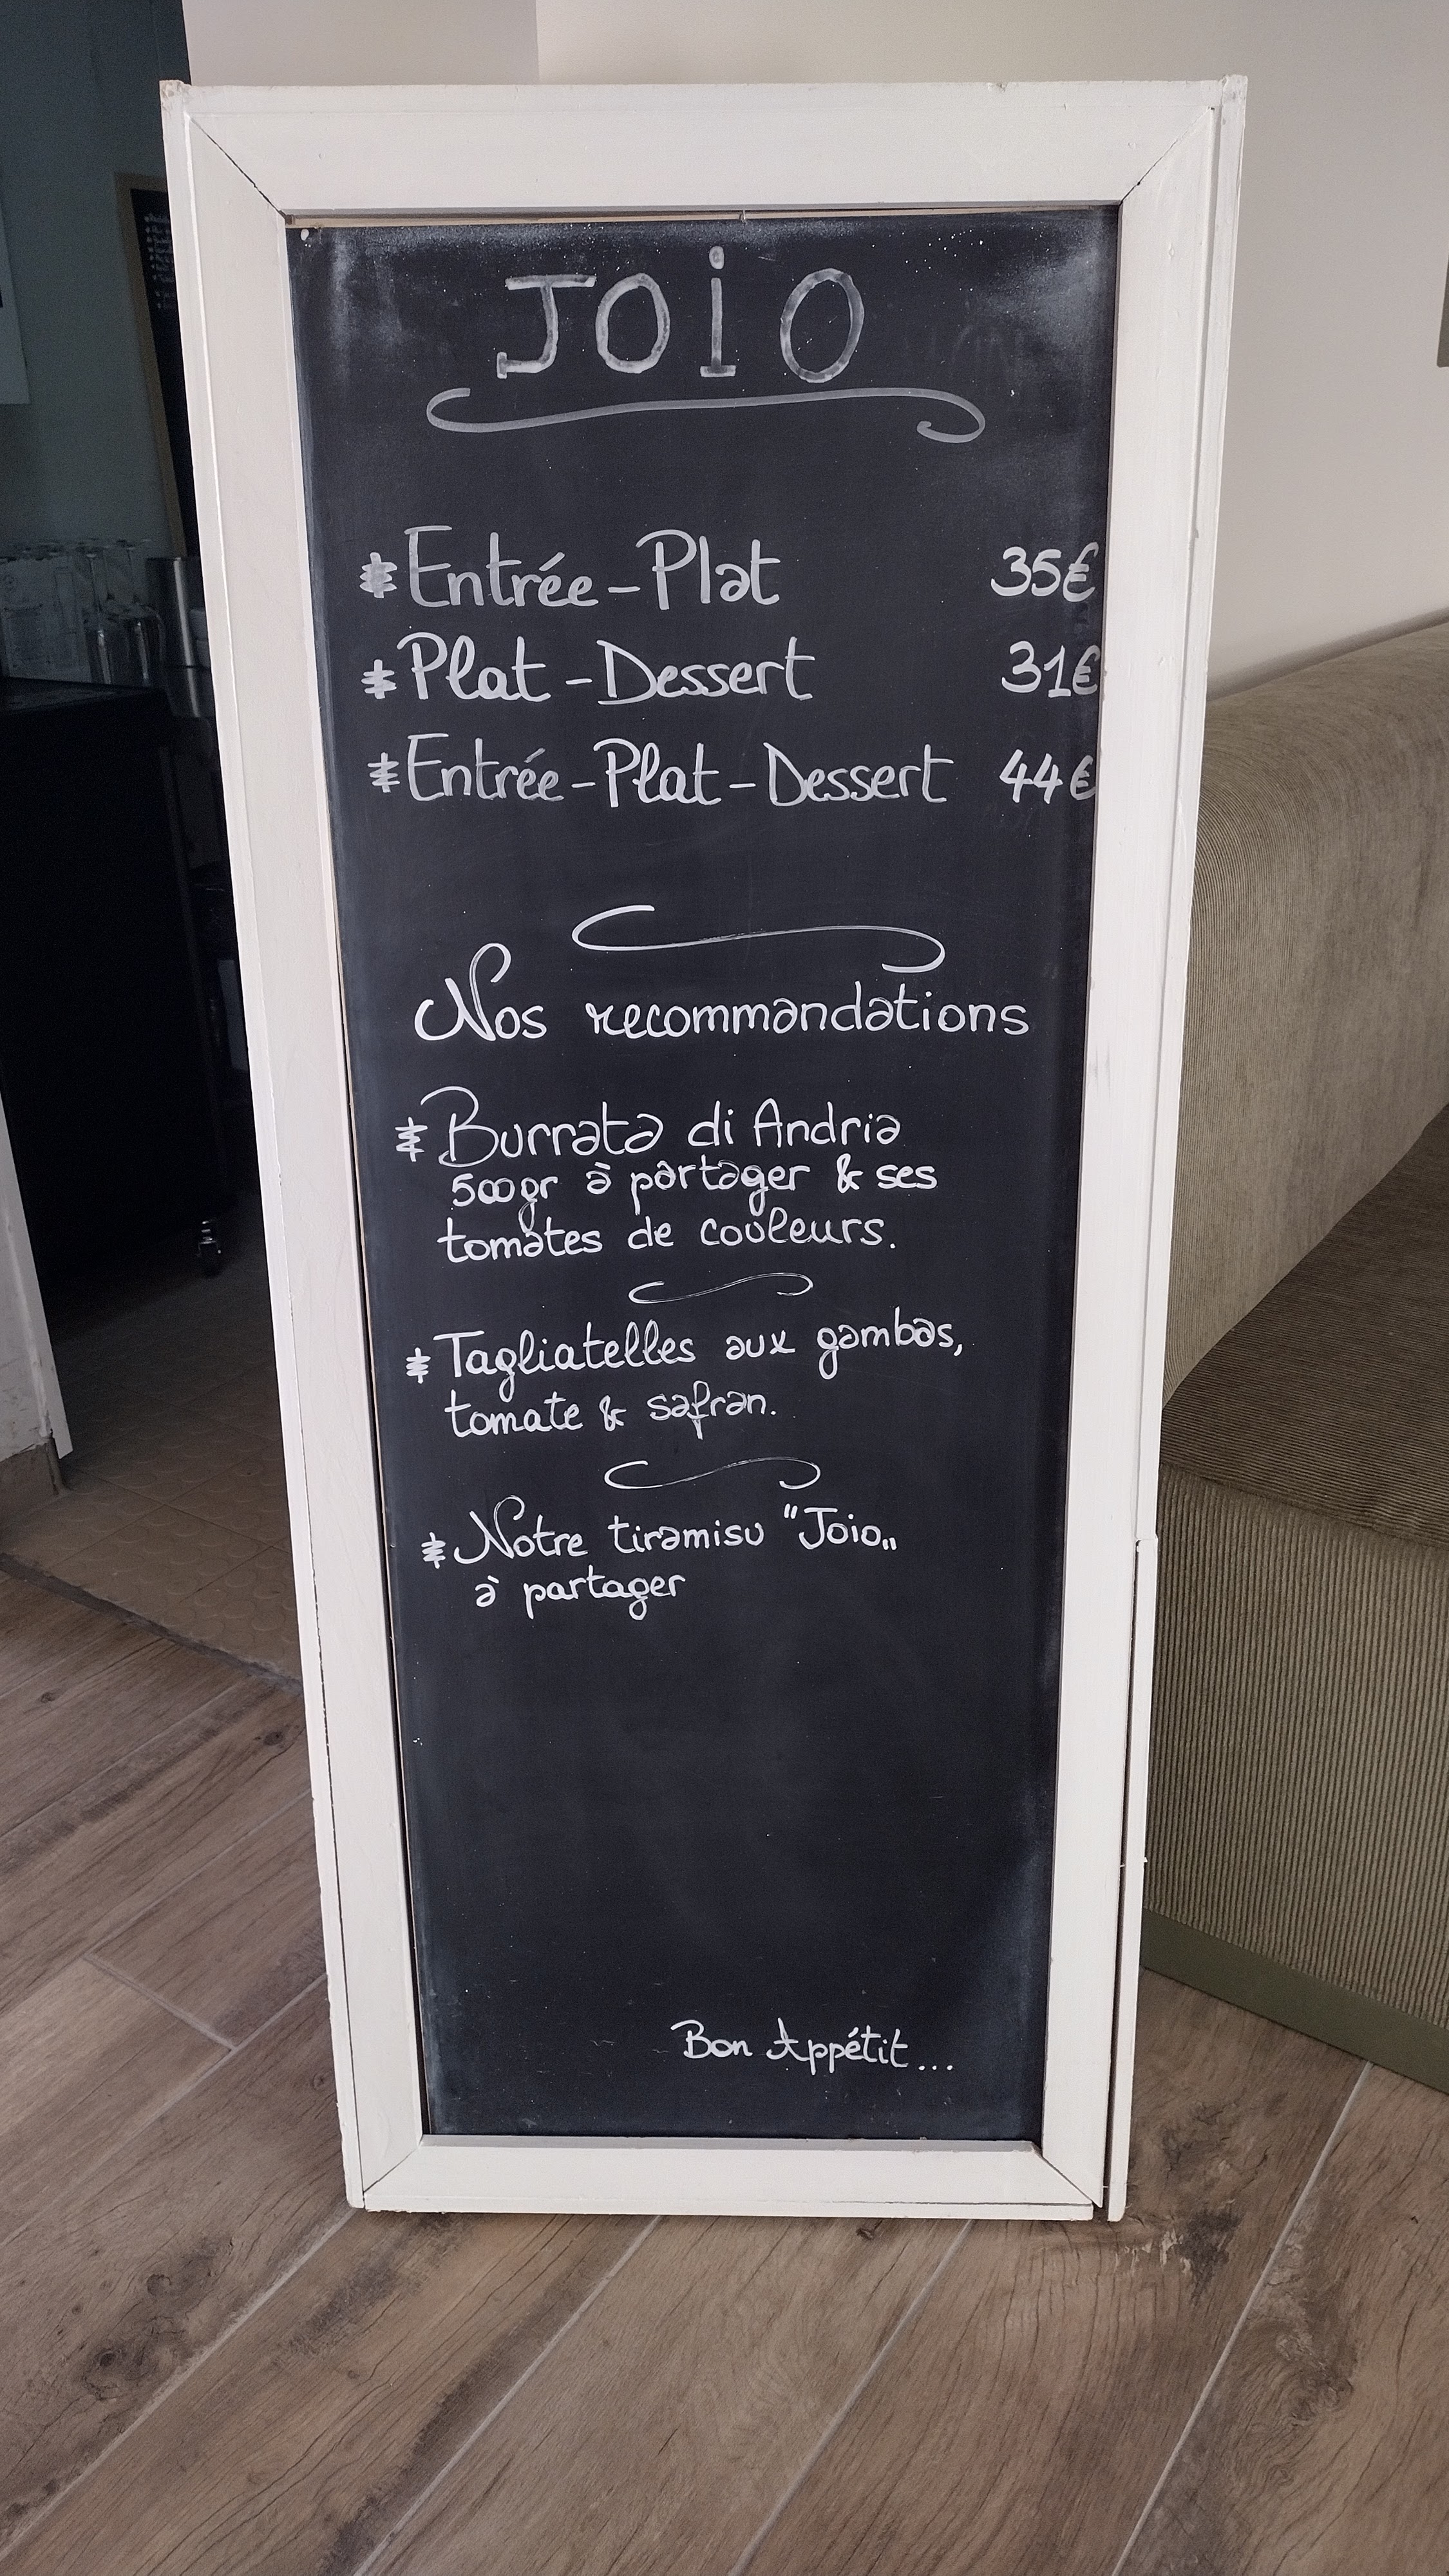 JOiO
* Entrée-Plat 35€
* Plat-Dessert 31€
* Entrée-Plat-Dessert 44€
Nos recommandations
* Burrata di Andria
500gr à partager & ses
tomates de couleurs.
* Tagliatelles aux gambas,
tomate & safran.
* Notre tiramisu "Joio„
à partager
Bon Appétit...